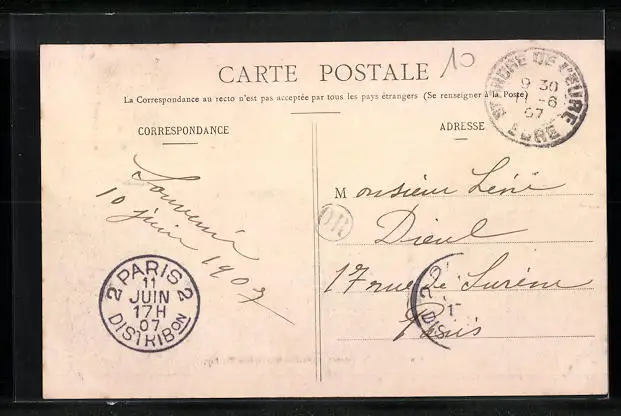 10
CARTE POSTALE
La Correspondance au recto n'est pas acceptée par tous les pays étrangers (Se renseigner à la Poste)
ST ANDRE DE L'EURE
9 30
11 -6
07
EURE
CORRESPONDANCE
Souvenir
10 juin 1907
PARIS 2
11
JUIN
17H
07
2 DISTRIBON
ADRESSE
Monsieur Léné
OR
Dieul
17 rue de Surène
Paris